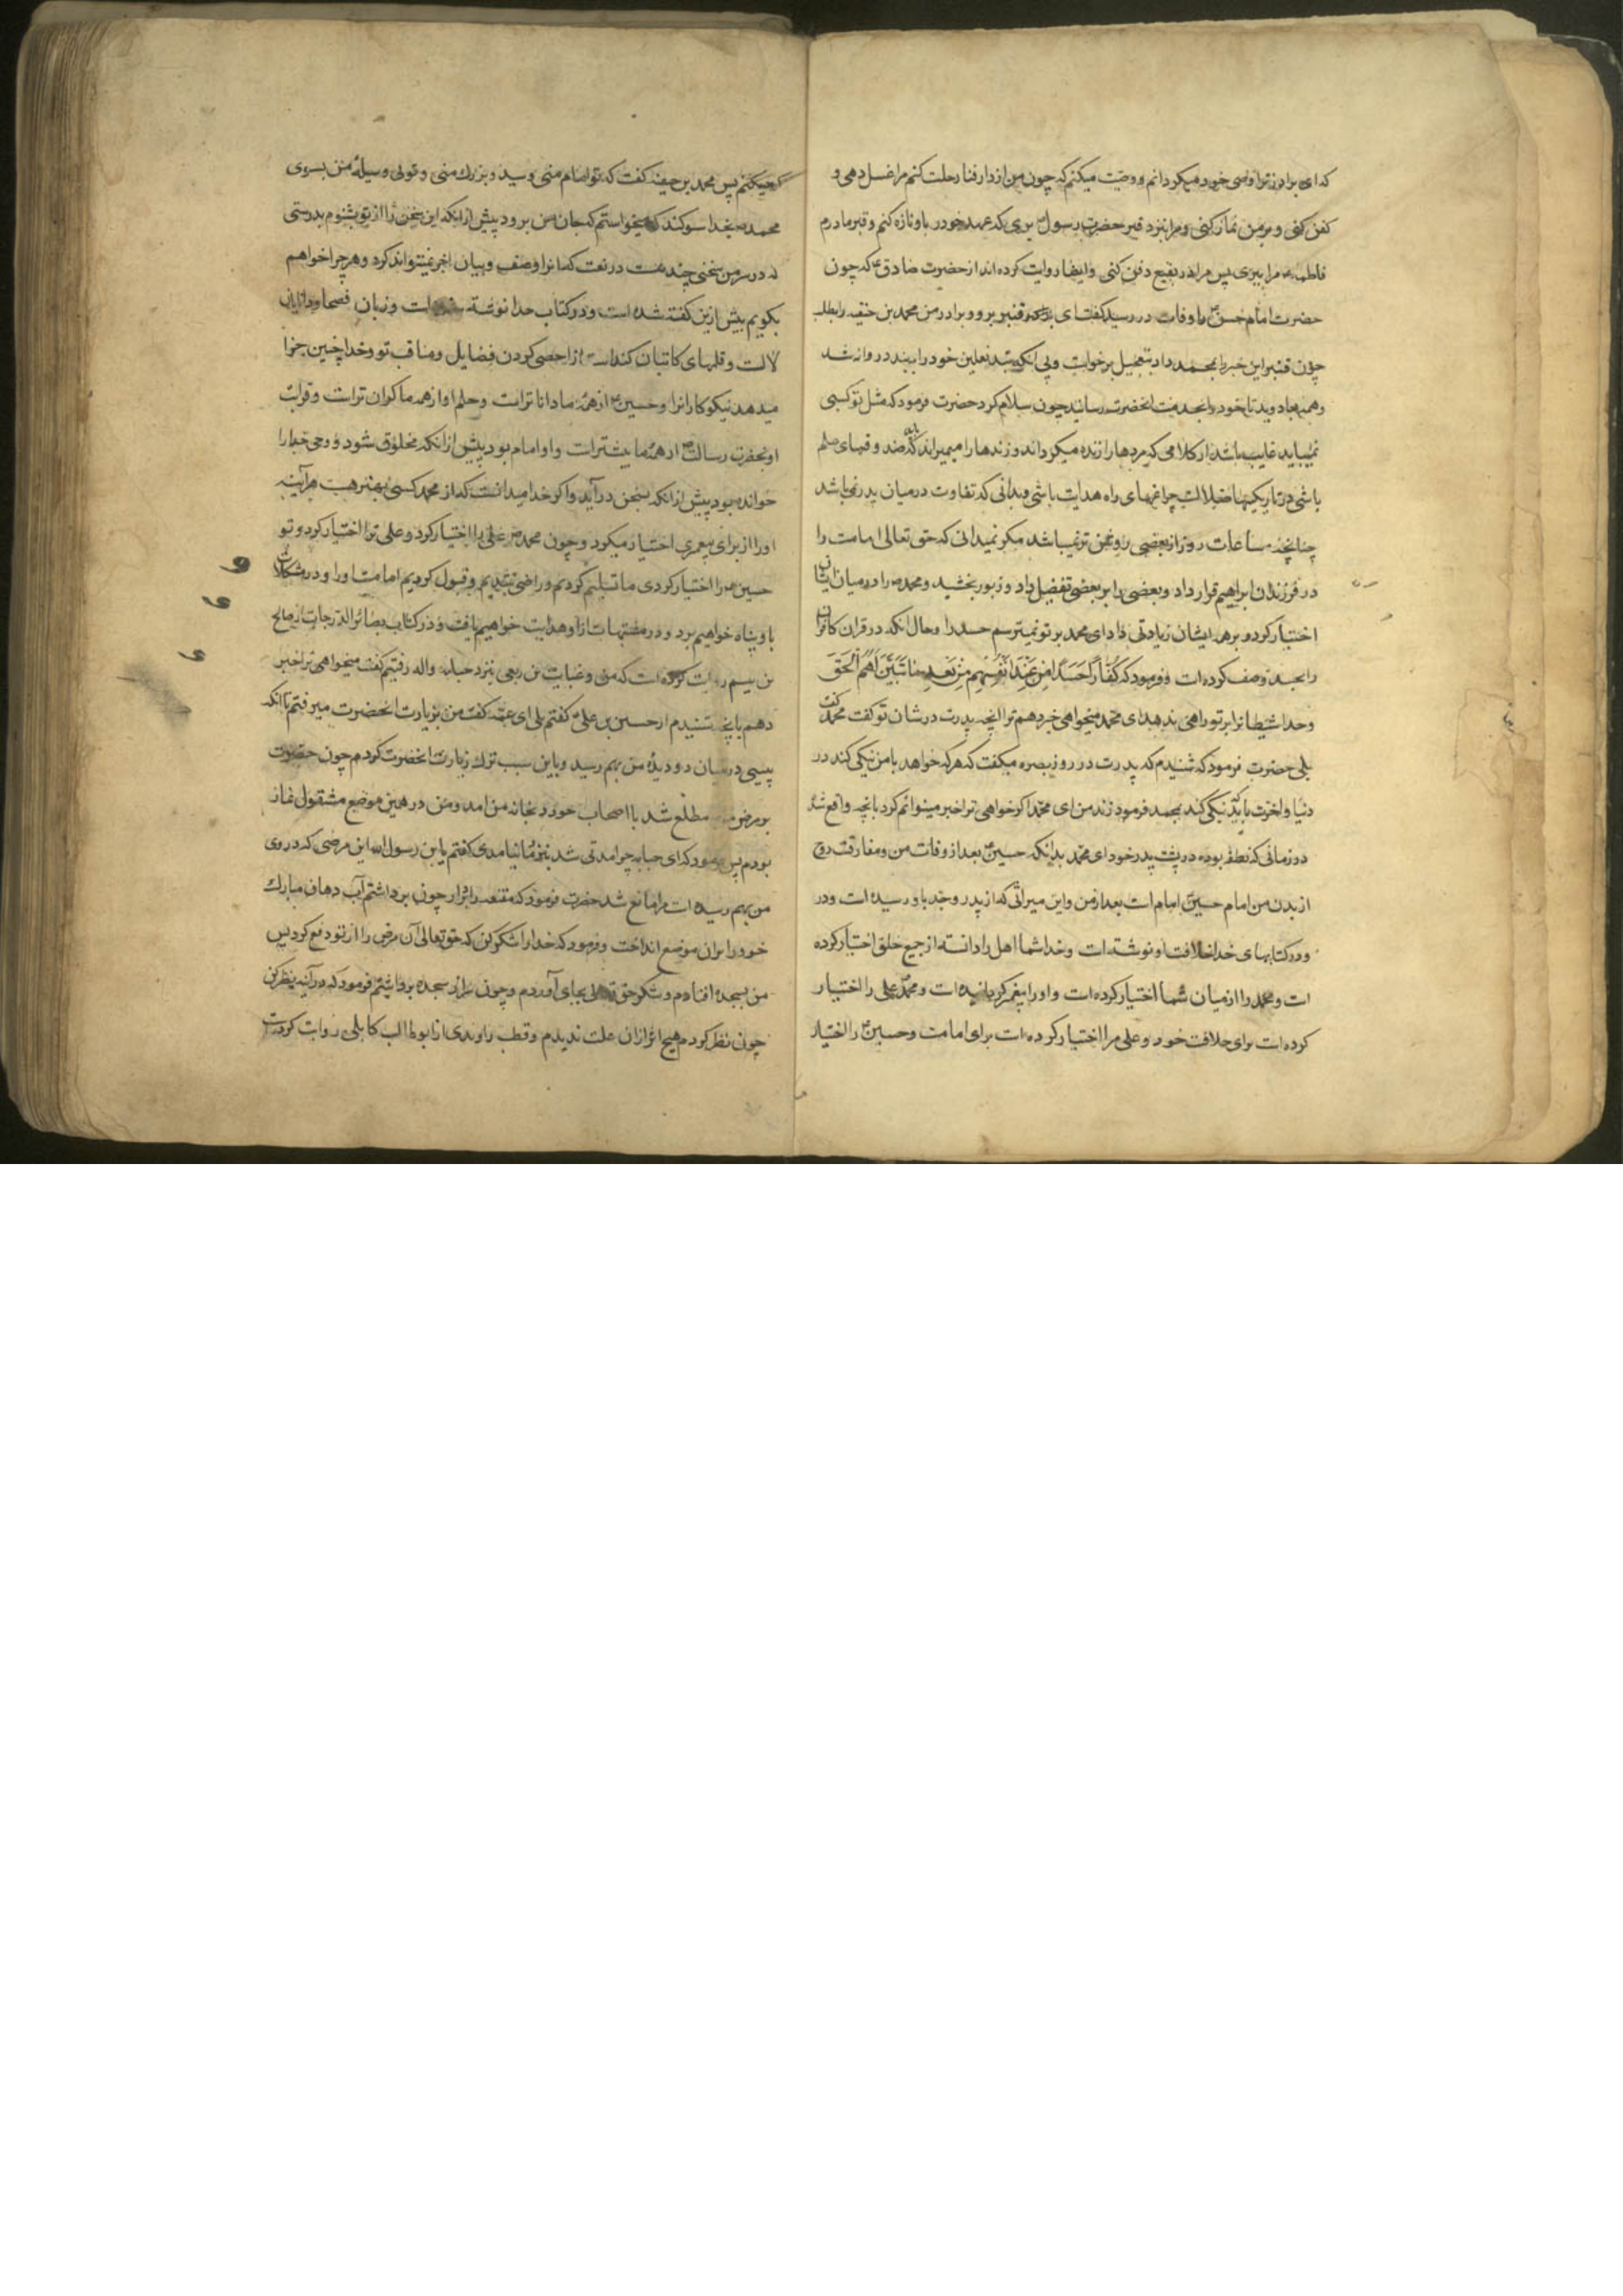 که ای برادر ترا وصی خود میکردانم و وصیت میکنم که چون من از دار فنا رحلت کنم مرا غسل دهی و
کفن کنی و بر من نماز کنی و مرا بنزد قبر حضرت رسول بری که عهد خود را با او تازه کنم و قبر مادرم
فاطمه مرا ببری پس مرا در بقیع دفن کنی وایضا روایت کرده اند از حضرت صادق ع که چون
حضرت امام حسن را وفات در رسید کفت ای قنبر برو و برادر من محمد بن حنفیه را بطلب
چون قنبر این خبر را بمحمد داد بتعجیل برخواست و بی انکه بند نعلین خود را ببندد روانه شد
و همه جا دوید تا خود را بخدمت انحضرت رسانید چون سلام کرد حضرت فرمود که مثل تو کسی
نمیباید غایب باشد از کلامی که مردها را زنده میکرداند و زندها را میمیراند باید که
باشی در تاریکیها ضلالت چراغهای راه هدایت باشی و بدانی که تفاوت در میان پدر نمیباشد
چنانچه ساعات روز از بعضی روشن تر نمیباشد مکر نمیدانی که حق تعالی امامت را
در فرزندان ابراهیم قرار داد و بعضی را بر بعضی تفضیل داد و زبور بخشید و محمد را در میان ایشان
اختیار کرد و بر همه ایشان زیادتی داد ای محمد بر تو نمیترسم حسد را و حال انکه در قران کافران
را بحسد وصف کرده است و فرمود که کُفَّاراً حَسَداً مِن عِندِ اَنفُسِهِم مِن بَعدِ مَا تَبَیَّنَ لَهُمُ الحَقّ
و خدا شیطانرا بر تو راهی ندهد ای محمد میخواهی خبر دهم ترا انچه پدرت در شان تو کفت محمد کفت
بلی حضرت فرمود که شنیدم که پدرت در روز بصره میکفت که هر که خواهد با من نیکی کند در
دنیا و اخرت باید نیکی کند بمحمد فرزند من ای محمد اکر خواهی ترا خبر میتوانم کرد بانچه واقع شد
در زمانی که نطفه بوده در پشت پدر خود ای محمد بدانکه حسین بعد از وفات من و مفارقت روح
از بدن من امام حسین امام است بعد از من و این میراثی که از پدر و جد باو رسیده است و در
و در کتابهای خدا خلافت او نوشته است و خدا شما اهل را دانسته از جمیع خلق اختیار کرده
است و محمد را از میان شما اختیار کرده است و او را پیغمبر کردانیده است و محمد علی را اختیار
کرده است برای خلافت خود و علی مرا اختیار کرده است برای امامت و حسین را اختیار
کرده میکنم پس محمد بن حنفیه کفت که تو امام منی و سید و بزرک منی و توئی وسیلهٔ من بسوی
محمد بخدا سوکند که میخواستم که جان من برود پیش از انکه این سخن را از تو بشنوم بدرستی
که در سر من سخنی چند هست در نعت شما او وصف و بیان اخر نمیتواند کرد و هر چرا خواهم
بکویم پیش ازین کفته شده است و در کتاب خدا نوشته شده است و زبان فصحا و دانایان
لال است و قلمهای کاتبان کند است از احصی کردن فضایل و مناقب تو و خدا چنین جزا
میدهد نیکو کارانرا و حسین از همهٔ ما دانا تر است و حلم او از همه ما کران تر است و قرابت
او بحضرت رسالت از همهٔ ما بیشتر است و او امام بود پیش از انکه مخلوق شود و وحی خدا را
خوانده بود پیش از انکه بسخن در آید و اکر خدا میدانست که از محمد کسی بهتر هست هر آینه
او را از برای پیغمبری اختیار میکرد و چون محمد علی را اختیار کرد و علی ترا اختیار کرد و تو
حسین را اختیار کردی ما تسلیم کردیم و راضی شدیم و قبول کردیم امامت او را و در مشکلات
باو پناه خواهیم برد و در مشتبهات ازاو هدایت خواهیم یافت و در کتاب بصائر الدرجات از صالح
بن میسم روایت کرده است که من و عبایت بن ربعی بنزد حبابه والبه رفتیم کفت میخواهی ترا خبر
دهم بانچه شنیدم از حسین بن علی کفتم بلی ای عمّه کفت من بزیارت انحضرت میرفتم تا انکه
پیسی در میان دو دیدهٔ من بهم رسید و باین سبب ترک زیارت انحضرت کردم چون حضرت
بر مرض من مطلع شد با اصحاب خود بخانه من امد و من در همین موضع مشغول نماز
بودم پس فرمود که ای حبابه چرا مدتی شد بنزد ما نیامدی کفتم یا بن رسول الله این مرضی که در روی
من بهم رسیده است مرا مانع شد حضرت فرمود که مقنعه را بردار چون برداشتم آب دهان مبارک
خود را بران موضع انداخت و فرمود که خدا را شکر کن که حق تعالی آن مرض را از تو دفع کرد پس
من بسجده افتادم و شکر حق تعالی بجای آوردم و چون سر از سجده برداشتم فرمود که در آینه نظر کن
چون نظر کردم هیچ اثر ازان علت ندیدم و قطب راوندی از ابو خالد کابلی روایت کرده است